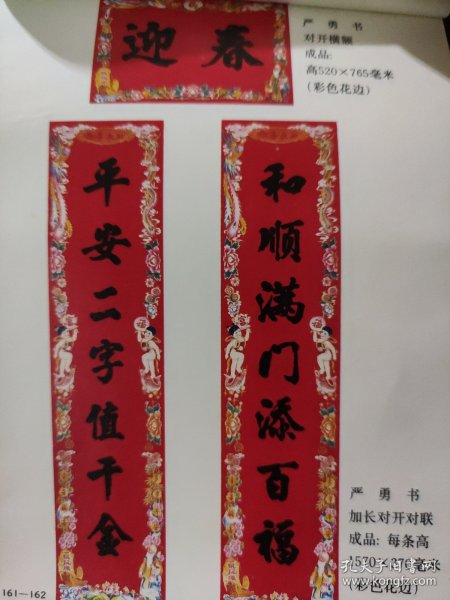 迎春
严勇书
对开横额
成品:
高520×765毫米
(彩色花边)
和顺满门添百福
平安二字值千金
严勇书
加长对开对联
成品: 每条高
(彩色花边)
161—162
孔夫子旧书网